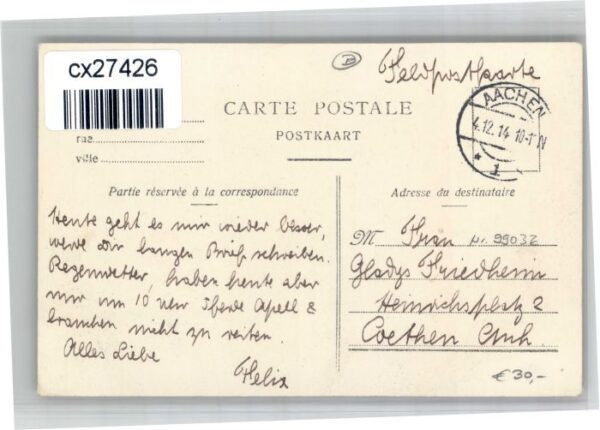 cx27426
Feldpostkarte
AACHEN
4.12.14 10-11 N
1
CARTE POSTALE
POSTKAART
rue
ville
Partie réservée à la correspondance
Adresse du destinataire
Heute geht es mir wieder besser,
werde Dir langen Brief schreiben.
Regenwetter, haben heute aber
nur um 10 Uhr Pferde Apell &
brauchen nicht zu reiten.
Alles Liebe
Felix
M Frau Nr. 99032
Gladys Friedheim
Heinrichsplatz 2
Coethen Anh.
€ 30,-